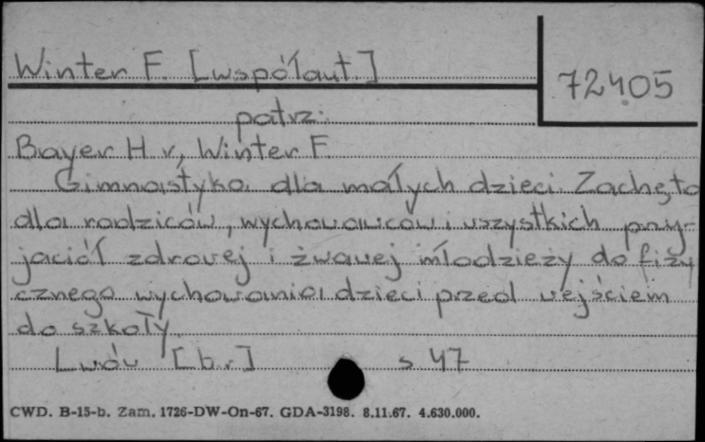 Winter F. [współaut.]
72405
patrz:
Bayer H v, Winter F.
Gimnastyka dla małych dzieci. Zachęta
dla rodziców, wychowawców i wszystkich przy-
jaciół zdrowej i żwawej młodzieży do fizy
cznego wychowania dzieci przed wejściem
do szkoły.
Lwów [b.r] s 47
CWD. B-15-b. Zam. 1726-DW-On-67. GDA-3198. 8.11.67. 4.630.000.